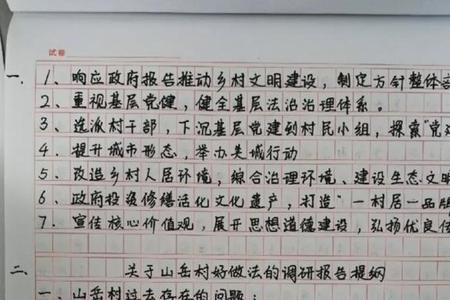 试卷
一、1、响应政府报告推动乡村文明建设，制定方针整体
2、重视基层党健，健全基层法治治理体系。
3、选派村干部，下沉基层党建到村民小组，探索"党
4、提升城市形态，举办美城行动
5、改造乡村人居环境，综合治理环境、建设生态文明
6、政府投资修缮活化文化遗产，打造"一村居一品牌
7、宣传核心价值观，展开思想道德建设，弘扬优良
二、关于山岳村好做法的调研报告提纲
一、山岳村过去存在的问题：